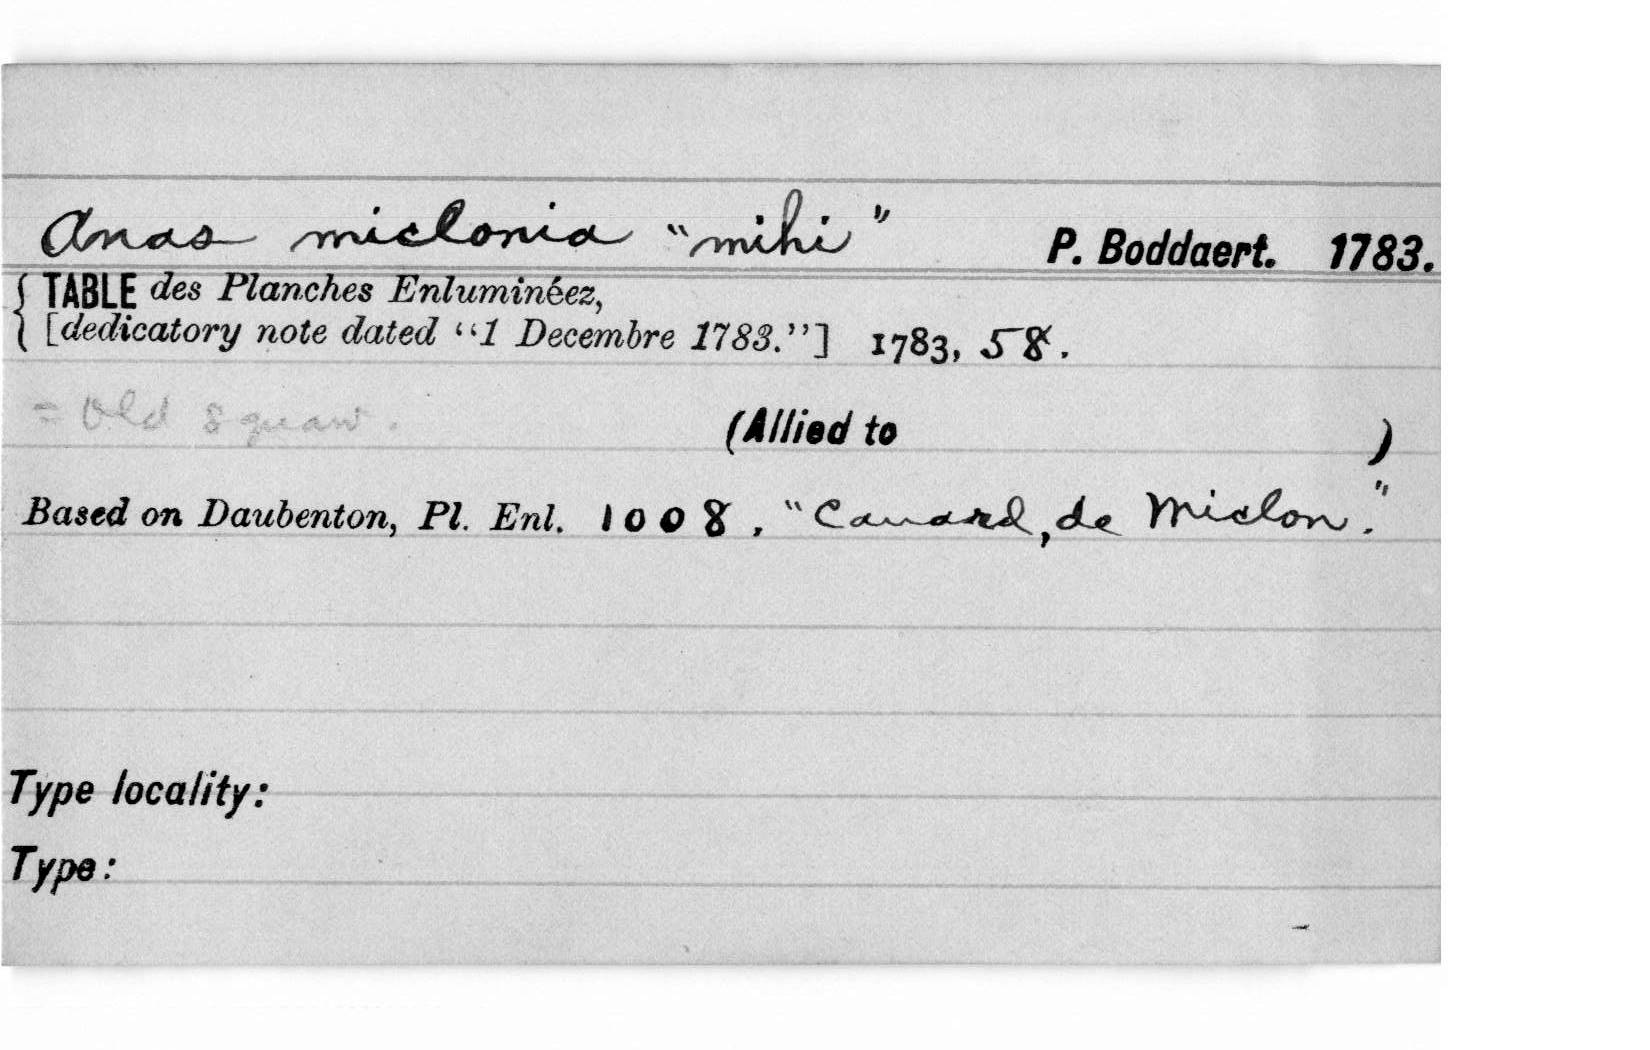 Anas miclonia "mihi" P. Boddaert. 1783.
{ TABLE des Planches Enluminéez,
[dedicatory note dated "1 Decembre 1783."] 1783, 58.
= Old Squaw. (Allied to )
Based on Daubenton, Pl. Enl. 1008. "Canard, de Miclon."
Type locality:
Type: